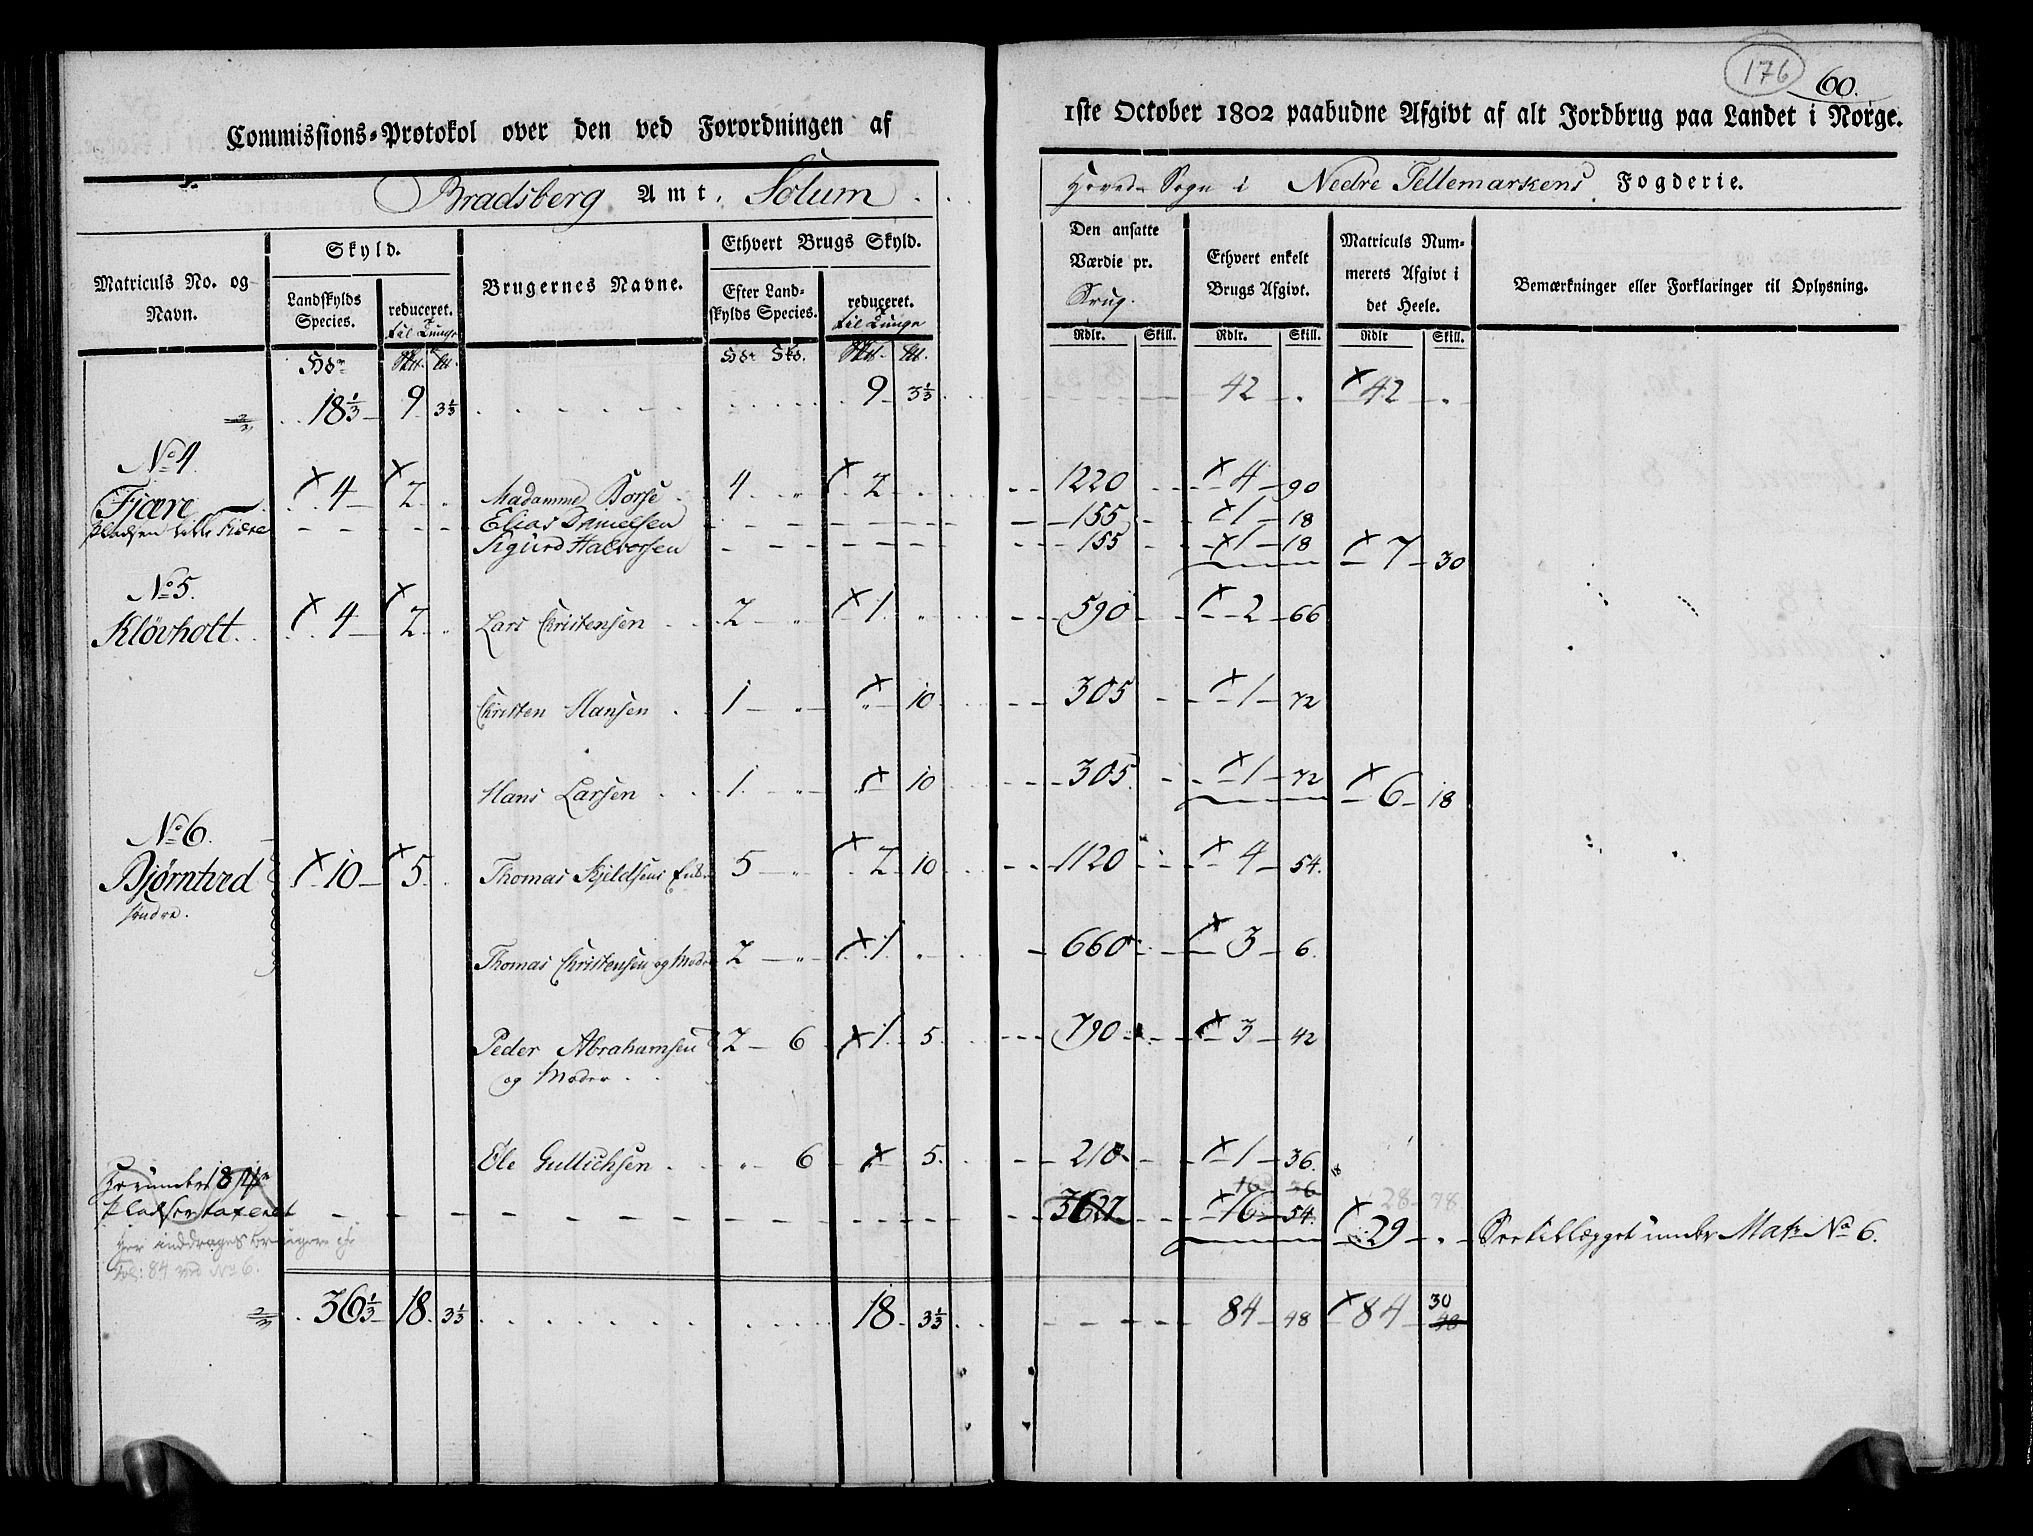 176
60.
Commissions-Protokol over den ved Forordningen af
1ste October 1802 paabudne Afgivt af alt Jordbrug paa Landet i Norge.
Bradsberg Amt. Solum
Hoved-Sogn i Nedre Tellemarkens Fogderie.
Matriculs No. og Navn.
Skyld.
Landskylds Species.
reduceret. til Tunge
Brugernes Navne.
Ethvert Brugs Skyld.
Efter Landskylds Species.
reduceret. til Tunge
Den ansatte Værdie pr. Brug.
Ethvert enkelt Brugs Afgivt.
Matriculs Nummerets Afgivt i det Heele.
Bemærkninger eller Forklaringer til Oplysning.
Rdlr. Skill. Rdlr. Skill. Rdlr Skill.
18 1/3 9 3 1/3 9 3 1/3 42 " × 42 "
No 4.
Fjære × 4 × 2 Madamme Borse 4 " × 2 1220 × 4 90
Pladsen lille Fiære Elias Danielsen 155 × 1 18
Sigurd Halvorsen 155 × 1 18 × 7 30
No 5.
Klövholt × 4 × 2 " Lars Christensen 2 " × 1 " 590 × 2 66
Christen Hansen 1 " × 10 305 × 1 72
Hans Larsen 1 " × 10 305 × 1 72 × 6 18
No 6.
Bjørntved × 10 × 5 Thomas Kjeldsens Enke 5 " × 2 10 1120 × 4 54
söndre.
Thomas Christensen og Moder 2 " × 1 " 660 × 3 6
Peder Abrahamsen 2 6 × 1 5 790 × 3 42
og Moder
Ole Gullichsen " 6 × 5 210 × 1 36
Herunder 18
Pladser taxeret 3627 × 16 54 28 78 × 29 " See tillægget under Matr No 6.
Her inddrages brugere
fol: 84 ved No 6.
36 1/3 18 3 1/3 18 3 1/3 84 48 × 84 30 48